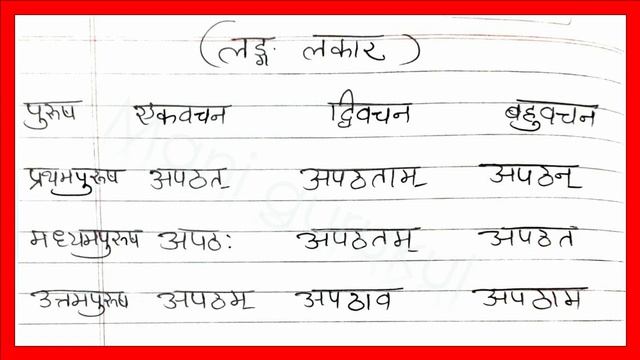 (लङ्ग. लकार)
पुरुष एकवचन द्विवचन बहुवचन
प्रथमपुरुष अपठत् अपठताम् अपठन्
मध्यमपुरुष अपठः अपठतम् अपठत
उत्तमपुरुष अपठम् अपठाव अपठाम
Mani gurukul